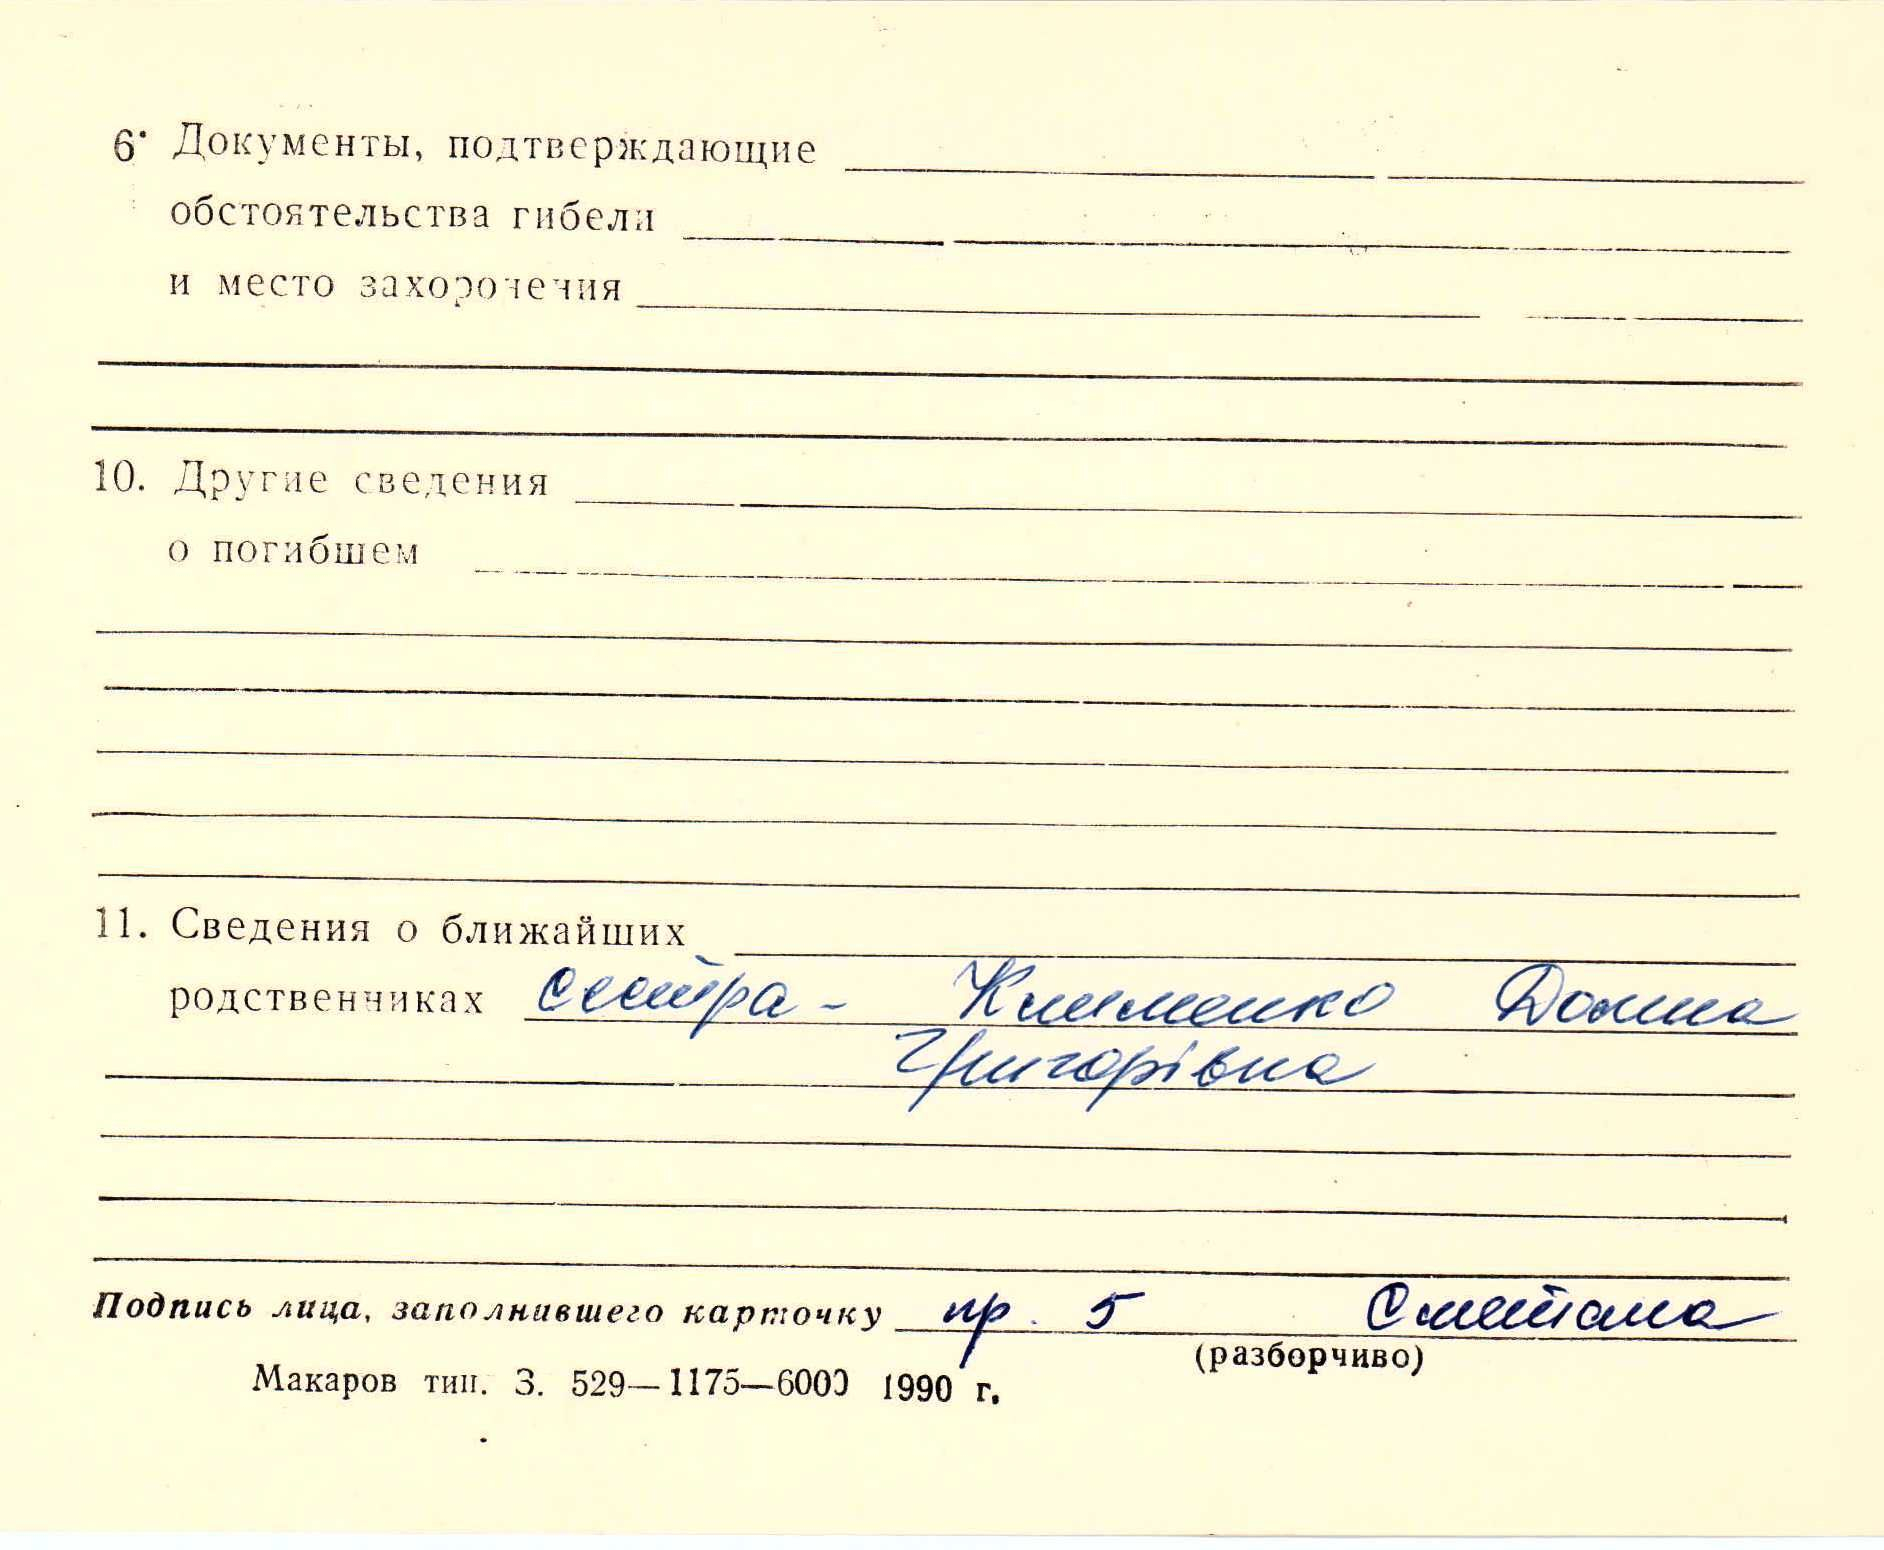 6. Документы, подтверждающие
обстоятельства гибели
и место захоронения
10. Другие сведения
о погибшем
11. Сведения о ближайших
родственниках сестра - Клименко Домна
Григорівна
Подпись лица, заполнившего карточку пр. 5 Сметана
(разборчиво)
Макаров тип. З. 529—1175—6000 1990 г.